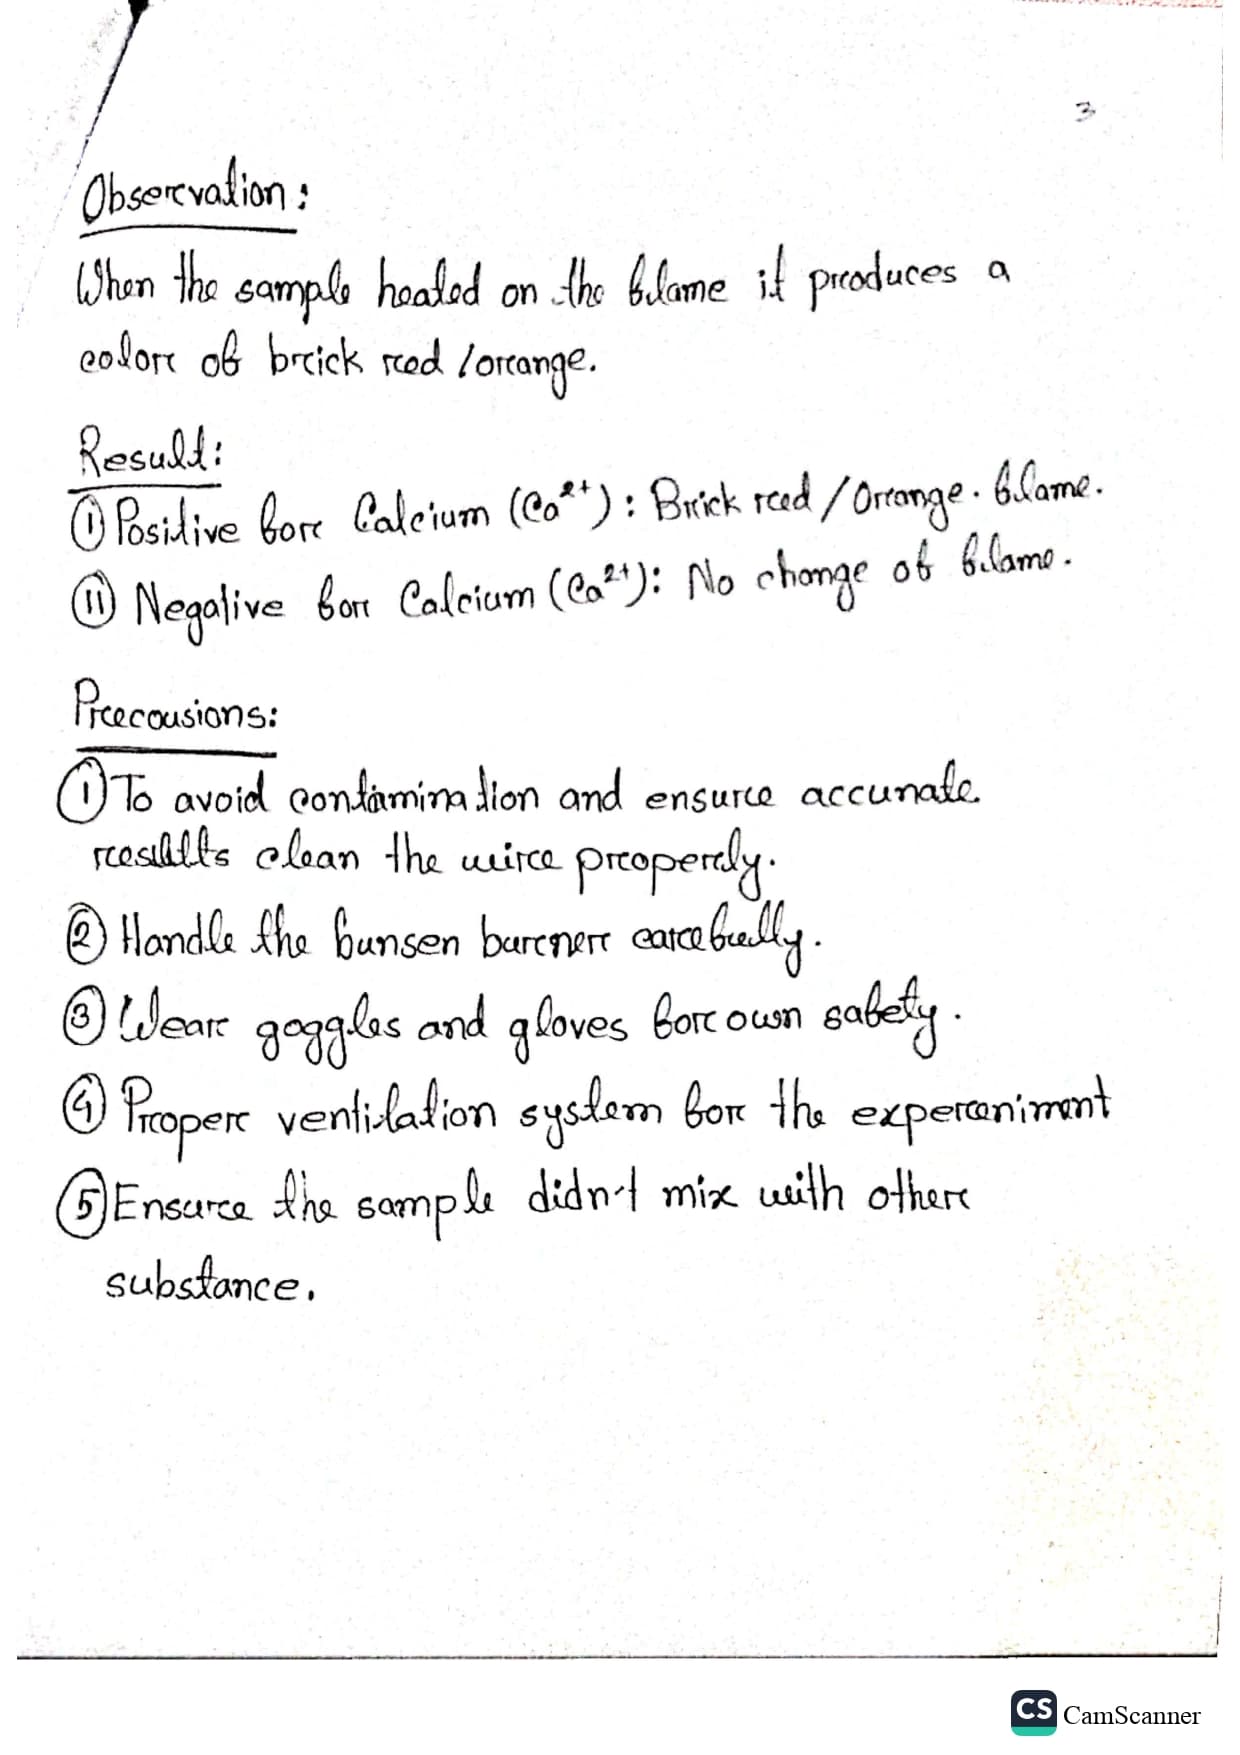 3
Observation:
When the sample heated on the flame it produces a
color of brick red / orange.
Result:
(i) Positive for Calcium (Ca²⁺): Brick red / Orange. flame.
(ii) Negative for Calcium (Ca²⁺): No change of flame.
Precousions:
① To avoid contamination and ensure accurate
results clean the wire properly.
② Handle the bunsen burner carefully.
③ Wear goggles and gloves for own safety.
④ Proper ventilation system for the experiment
⑤ Ensure the sample didn't mix with other
substance.
CS CamScanner